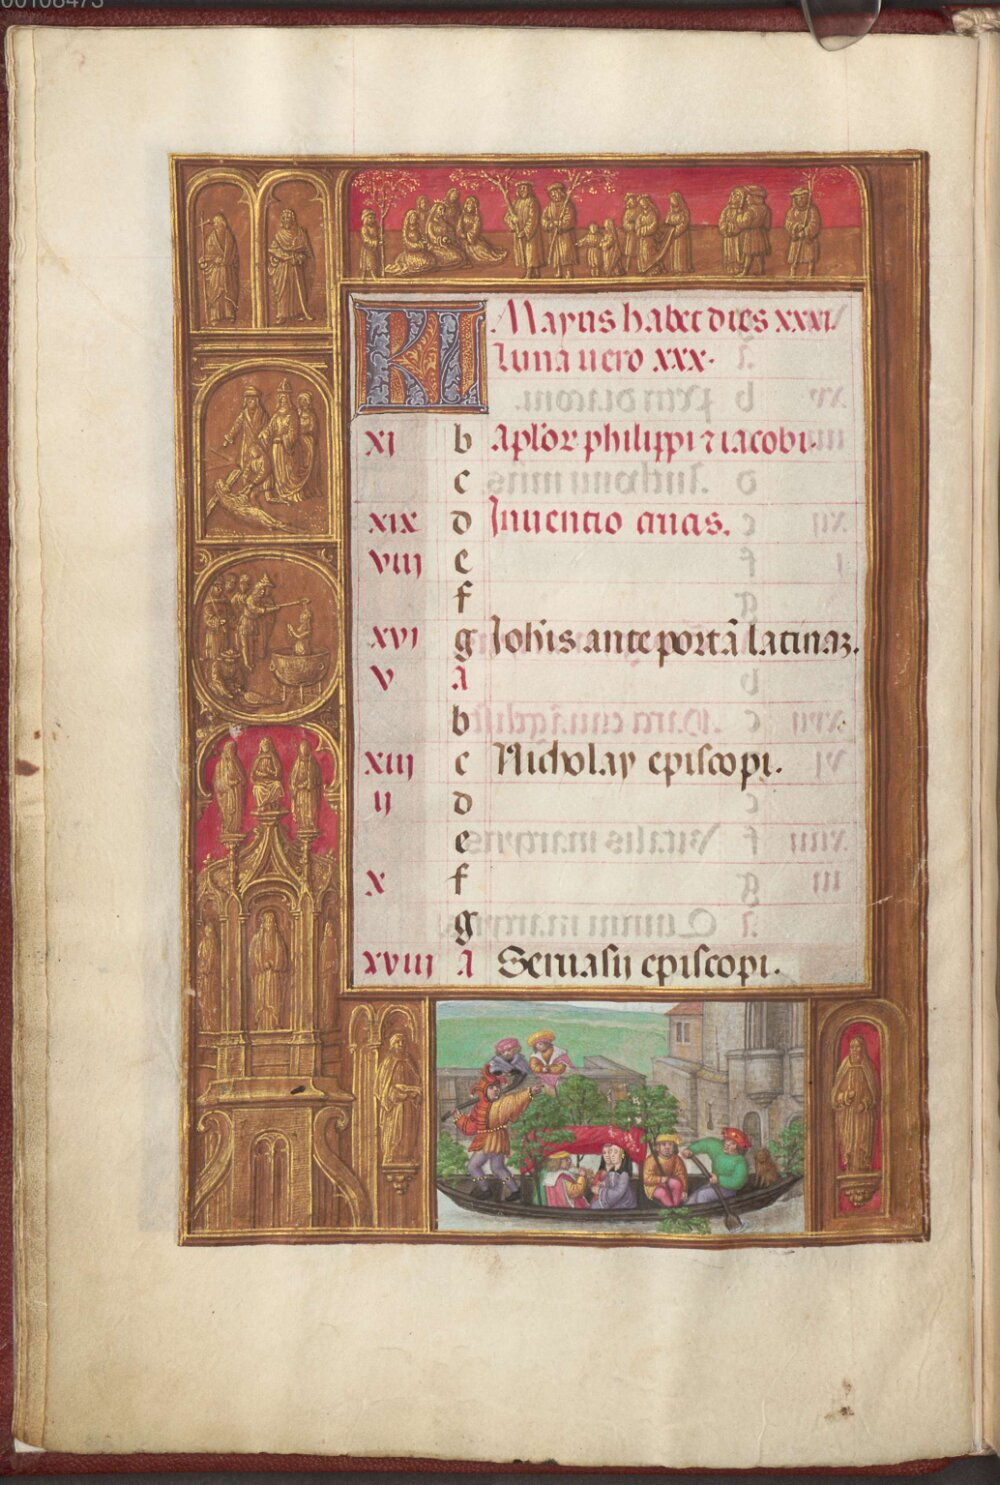 00108473
KL Mayus habet dies xxxi.
luna uero xxx.
xi b aplōr philippi ⁊ iacobi.
c
xix d Inuentio crucis.
viii e
f
xvi g Iohīs ante portā latinaꝫ.
v A
b
xiii c Nicholay episcopi.
ii d
e
x f
g
xviii A Seruasii episcopi.